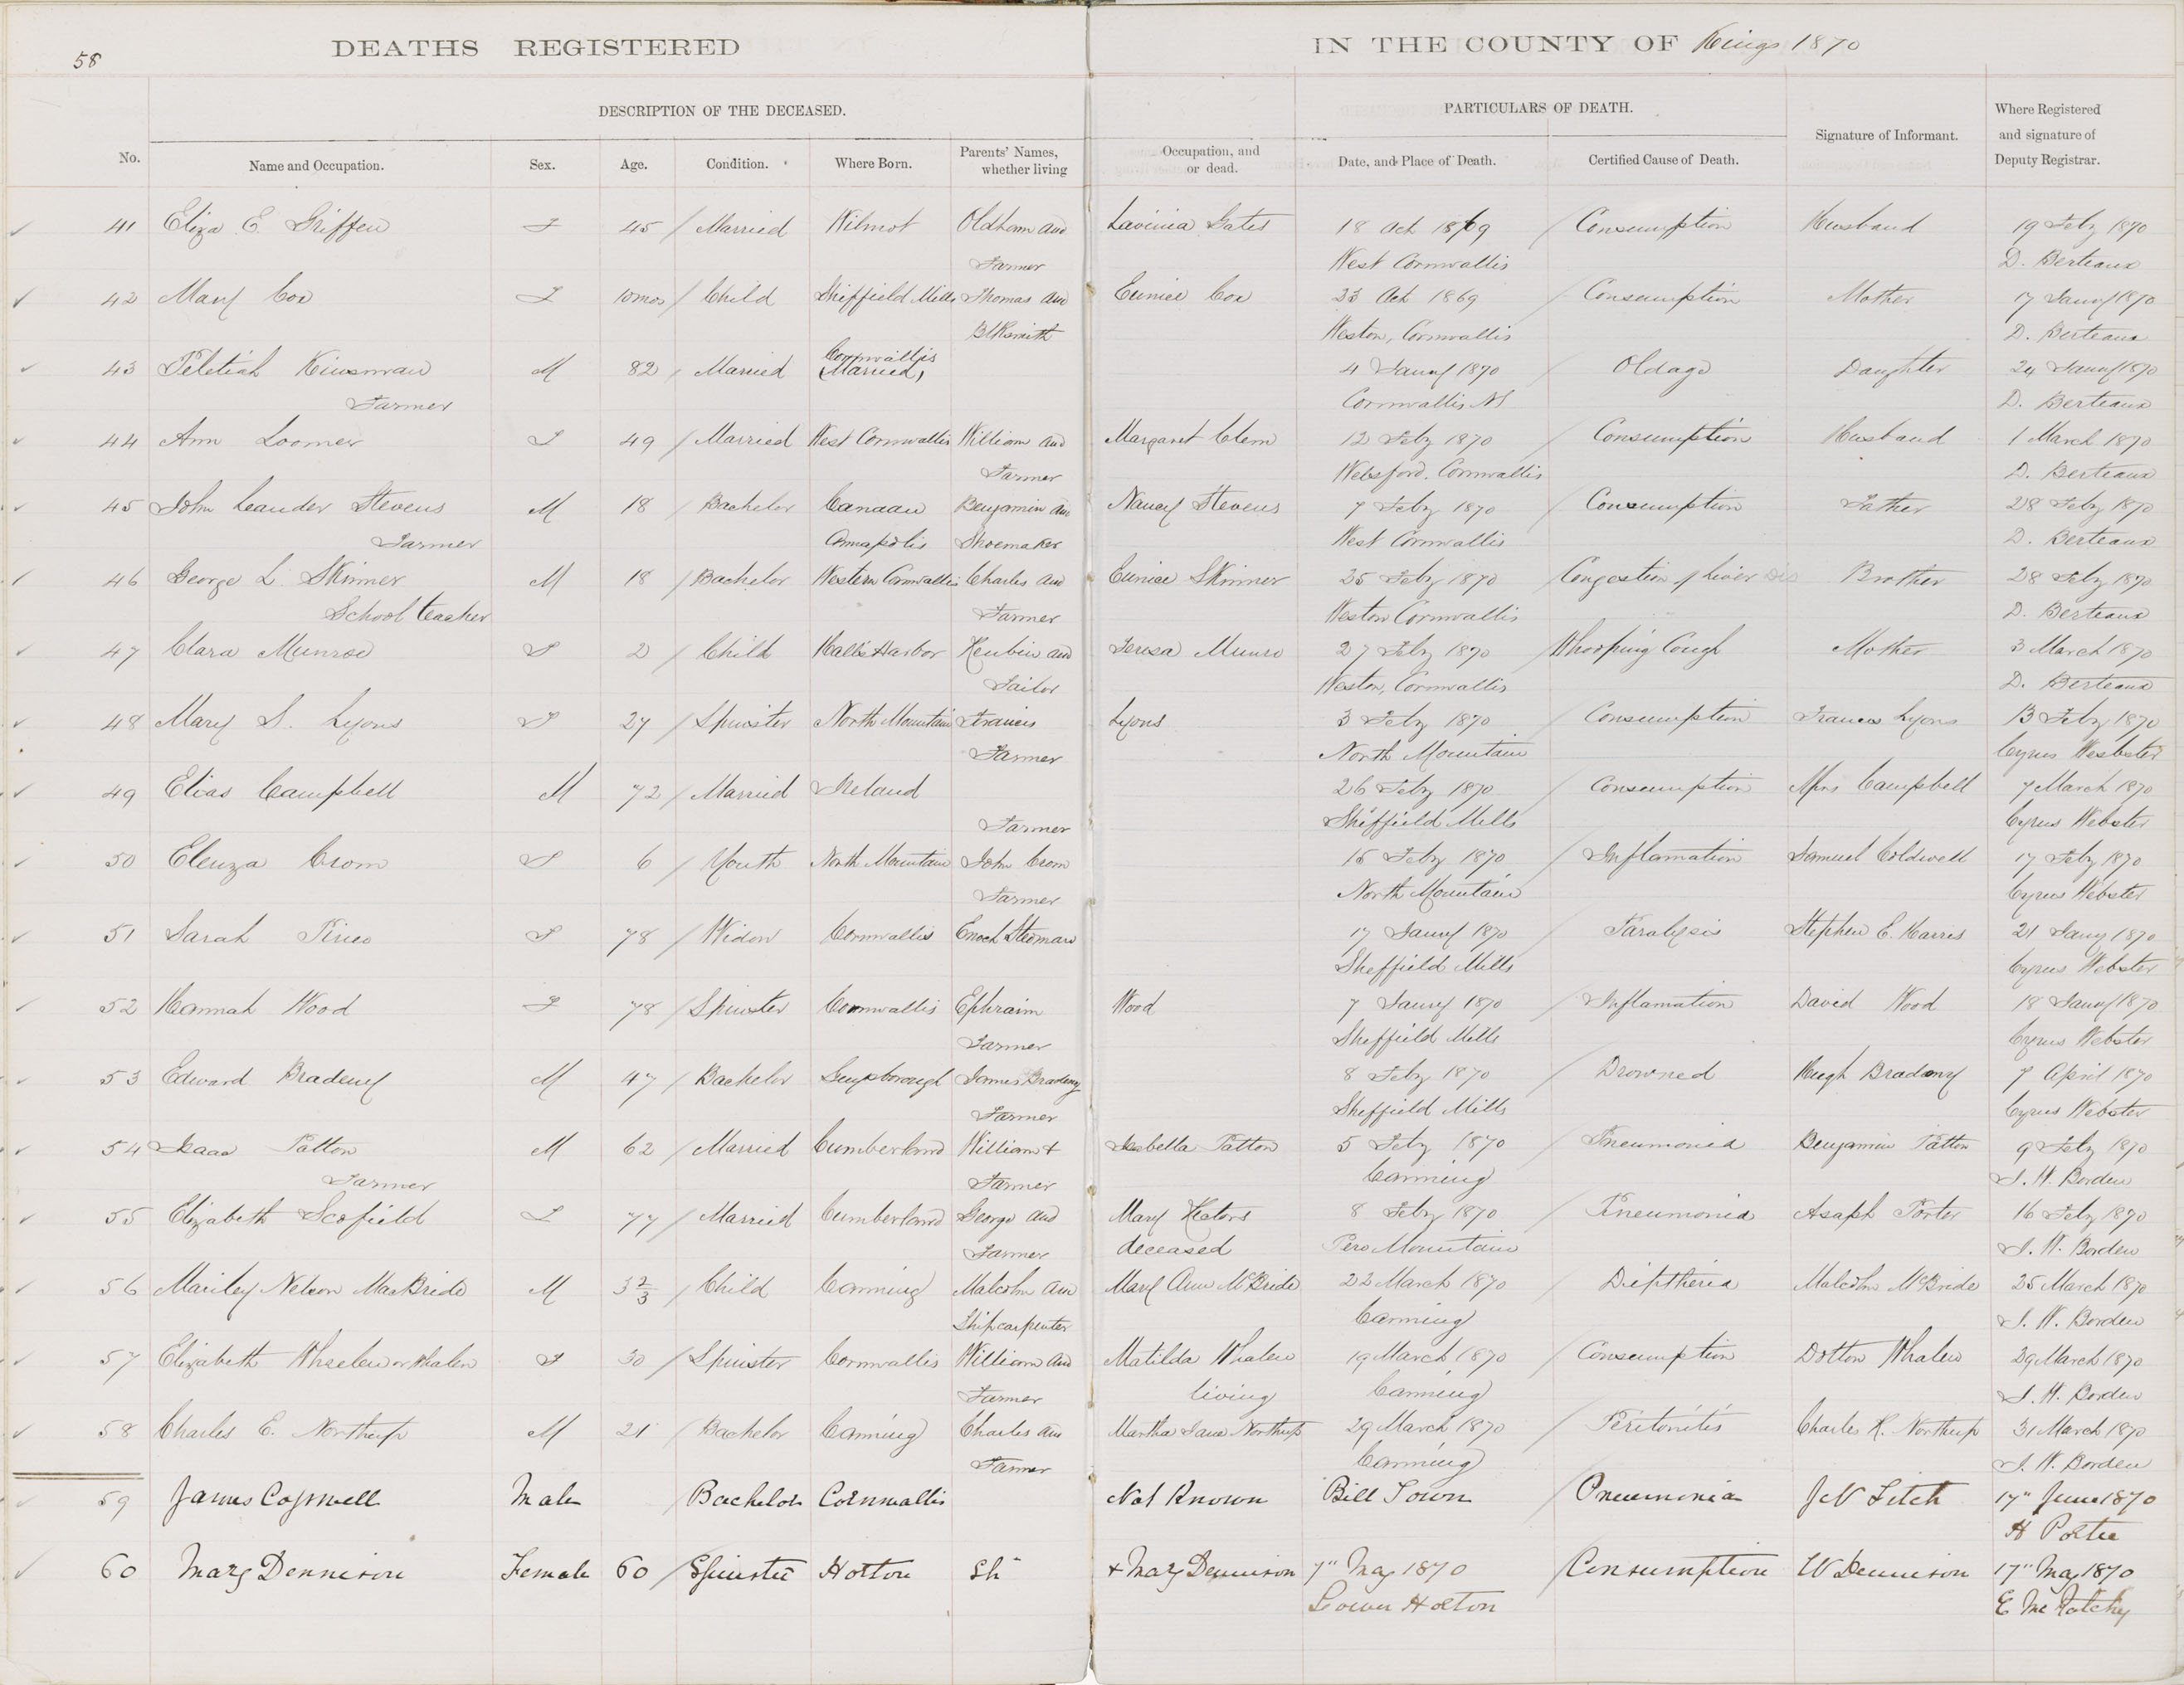 58
DEATHS REGISTERED IN THE COUNTY OF Kings 1870
DESCRIPTION OF THE DECEASED. PARTICULARS OF DEATH.
No. Name and Occupation. Sex. Age. Condition. Where Born. Parents' Names, whether living Occupation, and or dead. Date, and Place of Death. Certified Cause of Death. Signature of Informant. Where Registered and signature of Deputy Registrar.
41 Eliza E. Griffen F 45 Married Wilmot Oldham and Lavinia Gates 18 Oct 1869 Consumption Husband 19 Feby 1870
Farmer West Cornwallis D. Berteaux
42 Mary Cox F 10 mos Child Sheffield Mills Thomas and Eunice Cox 23 Oct 1869 Consumption Mother 17 Jany 1870
Blksmith Weston, Cornwallis D. Berteaux
43 Peletiah Kinsman M 82 Married Cornwallis Married, 4 Jany 1870 Old age Daughter 24 Jany 1870
Farmer Cornwallis NS D. Berteaux
44 Ann Loomer F 49 Married West Cornwallis William and Margaret Clem 12 Feby 1870 Consumption Husband 1 March 1870
Farmer Welsford. Cornwallis D. Berteaux
45 John Leander Stevens M 18 Bachelor Canaan Benjamin and Nancy Stevens 7 Feby 1870 Consumption Father 28 Feby 1870
Farmer Annapolis Shoemaker West Cornwallis D. Berteaux
46 George L. Skinner M 18 Bachelor Western Cornwallis Charles and Eunice Skinner 25 Feby 1870 Congestion of liver dis Brother 28 Feby 1870
School teacher Farmer Weston Cornwallis D. Berteaux
47 Clara Munroe F 2 Child Halls Harbor Reubin and Teresa Munro 27 Feby 1870 Whooping Cough Mother 3 March 1870
Sailor Weston, Cornwallis D. Berteaux
48 Mary S. Lyons F 27 Spinster North Mountain Francis Lyons 3 Feby 1870 Consumption Francis Lyons 13 Feby 1870
Farmer North Mountain Cyrus Webster
49 Elias Campbell M 72 Married Ireland 26 Feby 1870 Consumption Mrs Campbell 7 March 1870
Farmer Sheffield Mills Cyrus Webster
50 Eleuza Crom F 6 Youth North Mountain John Crom 15 Feby 1870 Inflamation Samuel Coldwell 17 Feby 1870
Farmer North Mountain Cyrus Webster
51 Sarah Pineo F 78 Widow Cornwallis Enoch Steoman 17 Jany 1870 Paralysis Stephen E. Harris 21 Jany 1870
Sheffield Mills Cyrus Webster
52 Hannah Wood F 78 Spinster Cornwallis Ephraim Wood 7 Jany 1870 Inflamation David Wood 18 Jany 1870
Farmer Sheffield Mills Cyrus Webster
53 Edward Bradeny M 47 Bachelor Guysborough James Bradeny 8 Feby 1870 Drowned Hugh Bradeny 7 April 1870
Farmer Sheffield Mills Cyrus Webster
54 Isaac Patton M 62 Married Cumberland William + Isabella Patton 5 Feby 1870 Pneumonia Benjamin Patton 9 Feby 1870
Farmer Farmer Canning J. W. Borden
55 Elizabeth Scofield F 77 Married Cumberland George and Mary Hetors 8 Feby 1870 Pneumonia Asaph Porter 16 Feby 1870
Farmer deceased Pero Mountain J. W. Borden
56 Mariley Nelson MacBride M 3 2/3 Child Canning Malcolm and Mary Ann McBride 22 March 1870 Diptheria Malcolm McBride 25 March 1870
Shipcarpenter Canning J. W. Borden
57 Elizabeth Whaelen or Whalen F 30 Spinster Cornwallis William and Matilda Whalen 19 March 1870 Consumption Dotton Whalen 29 March 1870
Farmer living Canning J. W. Borden
58 Charles E. Northup M 21 Bachelor Canning Charles and Martha Jane Northup 29 March 1870 Peritonitis Charles R. Northup 31 March 1870
Farmer Canning J. W. Borden
59 James Copswell Male Bachelor Cornwallis Not Known Bill Town Pneumonia J N Fitch 17" June 1870
H Porter
60 Mary Dennison Female 60 Spinster Horton Sh + Mary Dennison 7" May 1870 Consumption W Dennison 17" May 1870
Lower Horton E McLatchy